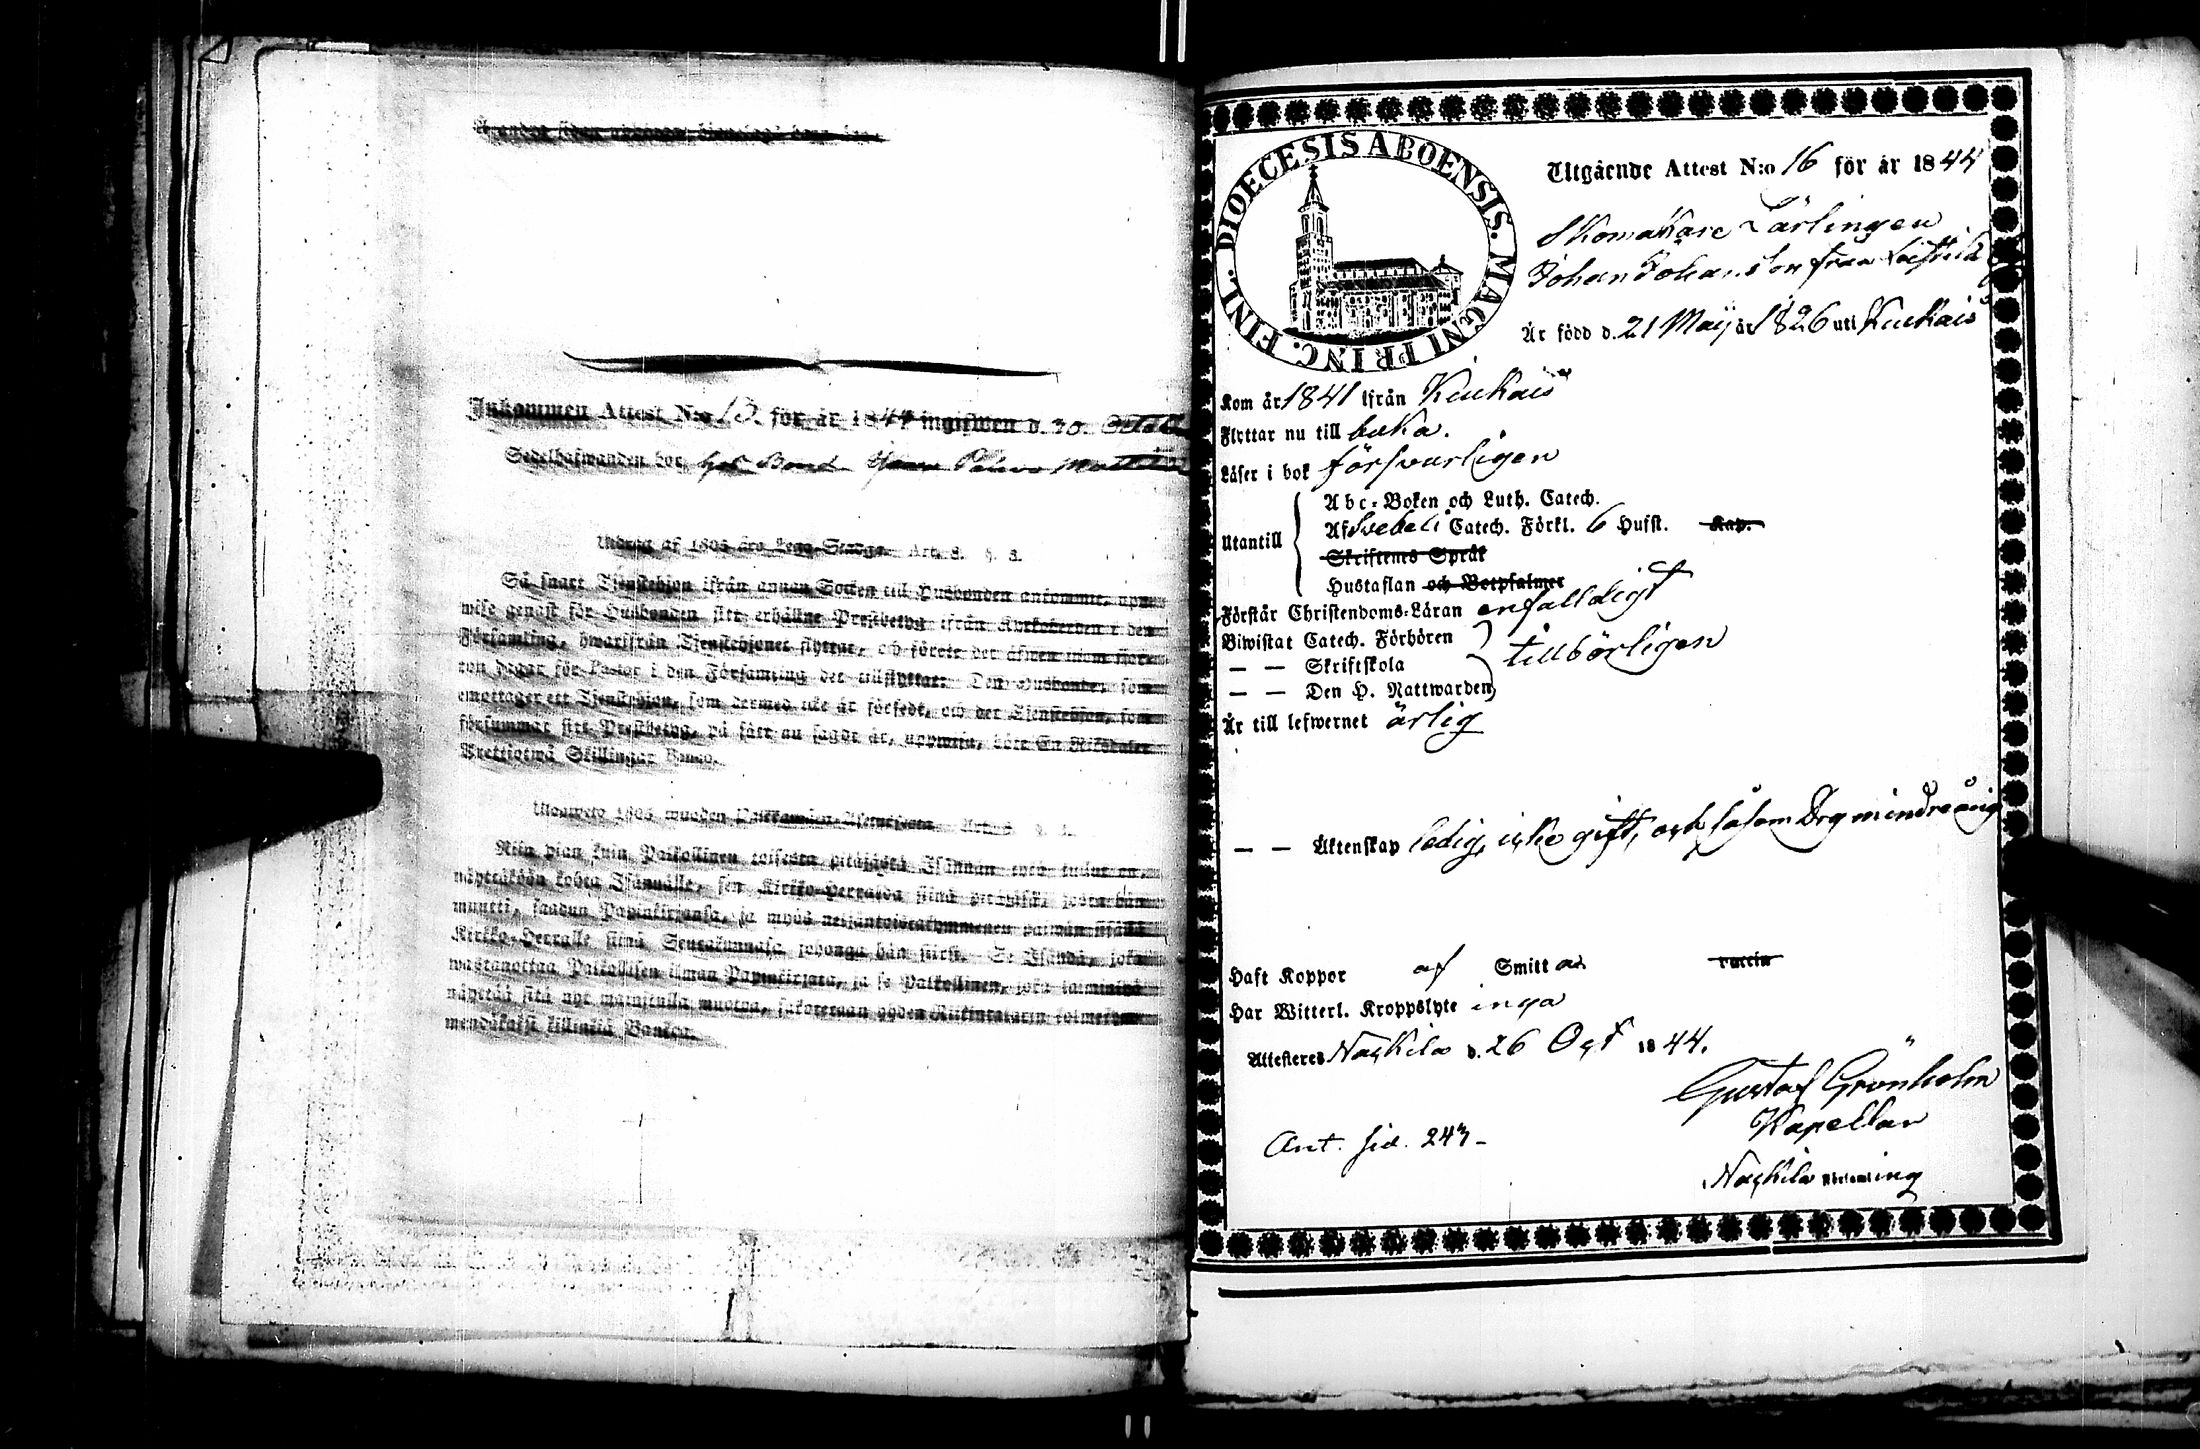 Inkommen Attest N:o 13. för år 1844 ingifwen d. 30
Sedelhafwanden bor hos Bond
Utdrag af 1805 års Lego-Stadga. Art. 3. §. 3.
Så snart Tjenstehjon ifrån annan Socken till Husbonden ankommit, upp-
wise genast för Husbonden sitt erhållne Prestbetyg ifrån Kyrkoherden i den
Församling, hwarifrån Tjenstehjonet flyttat, och förete det äfwen inom fjor-
ton dagar för Pastor i den Församling det tillflyttat. Den Husbonde, som
emottager ett Tjenstehjon, som dermed icke är försedt, och det Tjenstehjon, som
försummar sitt Prestbetyg, på sätt nu sagdt är, uppwisa, böte En Riksdaler
Trettiotwå Skillingar Banco.
Ulosweto 1805 wuoden Palkkawäen-Asetuksesta. Art. 3. §. 3.
Niin pian kuin Palkollinen toisesta pitäjästä Isännän tykö tullut on,
näyttäköön kohta Isännälle, sen Kirkko-Herralda siinä pitäjäsä, josta hän
muutti, saadun Papinkirjansa, ja myös neljäntoistakymmenen päiwän sisällä
Kirkko-Herralle siinä Seurakunnasa, johonga hän siirsi. Se Isändä, joka
wastanottaa Palkollisen ilman Papinkirjata, ja se Palkollinen, joka laiminlyö
näyttää sitä nyt mainitulla muotoa, sakotetaan yhden Riikintalarin kolmekym-
mendäkaksi killingiä Bankoa.
DIOECESIS ABOENSIS. MAGNI PRINC. FINL.
Utgående Attest N:o 16 för år 1844
Skomakare Lärlingen
Johan Johansson från
Är född d. 21 Maij år 1826 uti Kiukais
Kom år 1841 ifrån Kiukais
Flyttar nu till
Läser i bok försvarligen
Utantill
Abc-Boken och Luth. Catech.
Af Svebeli Catech. Förkl. 6 Hufst. Kap.
Skriftenes Språk
Hustaflan och Botpsalmer
Förstår Christendoms-Läran enfalldigt
Biwistat Catech. Förhören
— — Skriftskola tillbörligen
— — Den H. Nattwarden
Är till lefwernet ärlig
— — Äktenskap ledig, icke gift, och såsom Drg minderårig
Haft Koppor af Smitta
Har Witterl. Kroppslyte inga
Attesteres Nackila d. 26 Oct 1844.
Gustaf Grönholm
Kapellan
Ant. sid. 247-
Nackila Församling